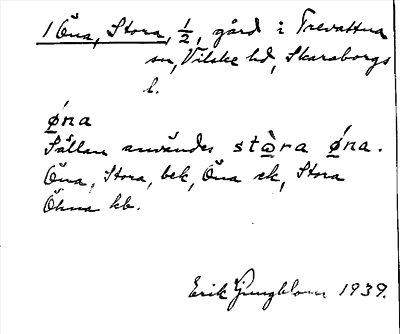 1 Öna, Stora, ½, gård i Trevattna
sn, Vilske hd, Skaraborgs
l.
ǿna
Sällan användes stò̱ra ǿna.
Öna, Stora, bek, Öna ek, Stora
Öhna kb.
Erik Ljungblom 1939.